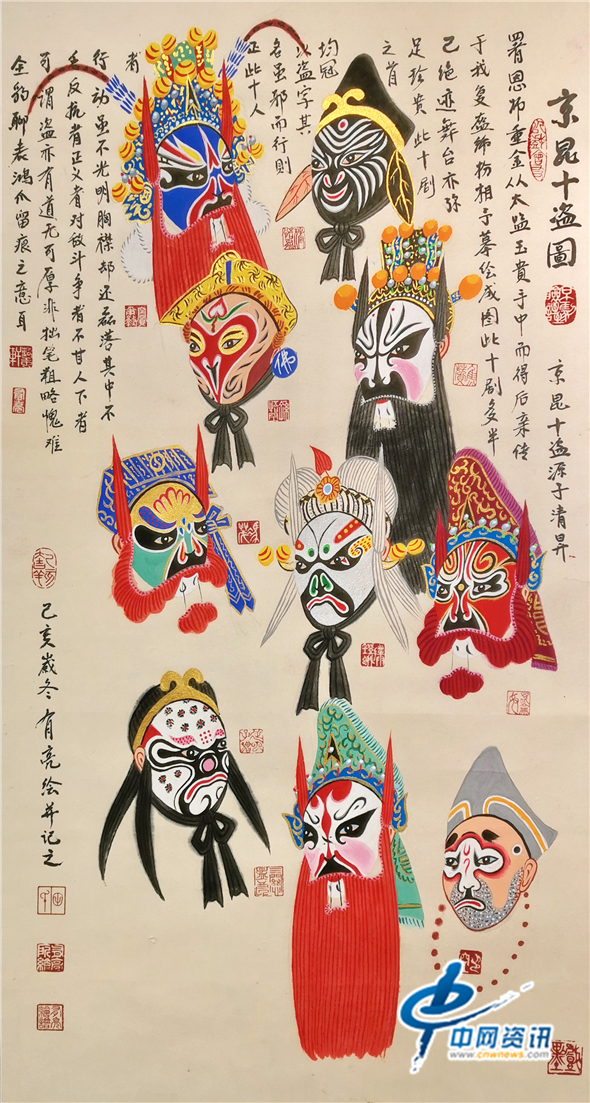 京昆十盗圖
京昆十盗源于清昇
署恩师重金从太监玉貴手中而得后亲传
于我复盔饰粉相予摹绘成图此十剧多半
已绝迹舞台亦弥
足珍贵此十剧
之首
均冠
以盗字其
名虽邪而行则
正此十人
者
行动虽不光明胸襟却还磊落其中不
乏反抗者正义者对敌斗争者不甘人下者
可谓盗亦有道无可厚非拙笔粗略愧难
全豹聊表鸿爪留痕之意耳
己亥歲冬有亮绘并记之
佛
中网资讯
www.cnwnews.com